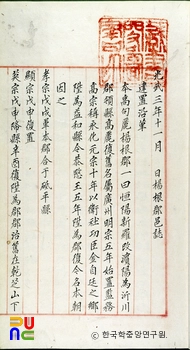 光武三年十一月 日楊根郡邑誌
建置沿革
本高句麗楊根郡一曰恒陽新羅改濱陽爲沂川
郡領縣高麗復舊名屬廣州明宗五年始置監務
高宗稱永化元宗十年以衛社功臣金自廷之鄕
陞爲益和縣令恭愍王五年陞爲郡復今名本朝
因之
孝宗戊戌革本郡合于砥平縣
顯宗戊申復置
英宗戊申降縣辛酉復陞爲郡郡治舊在乾芝山下
© 한국학중앙연구원